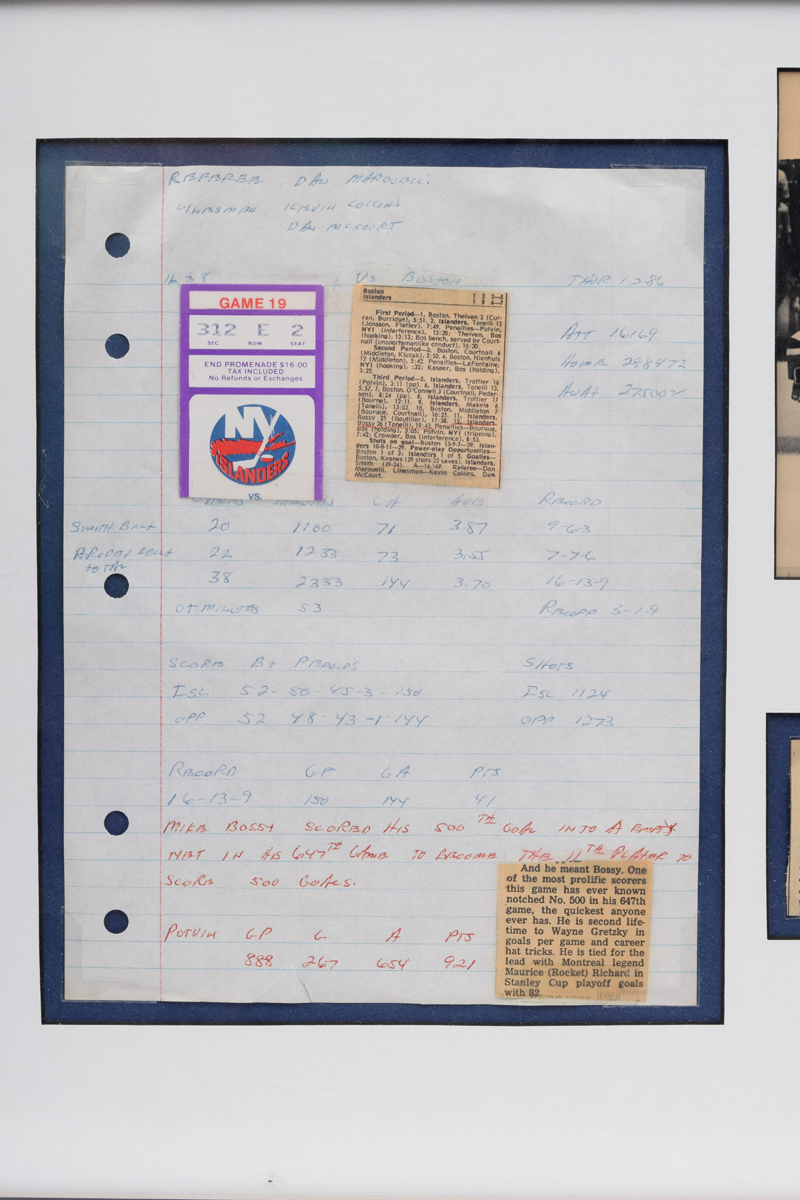 REFEREE DAN MAROUELLI
LINESMAN KEVIN COLLINS
DAN MCCOURT
VS BOSTON
THUR 1 2 86
ATT 16169
HOME 298472
AWAY
GAME 19
312 E 2
SEC ROW SEAT
END PROMENADE $16.00
TAX INCLUDED
No Refunds or Exchanges
NY
ISLANDERS
VS.
Boston 1 2 3—6
Islanders 1 0 6—7
First Period—1, Boston, Thelven 3 (Cur-
ran, Burridge), 5:51. 2, Islanders, Tonelli 12
(Jonsson, Flatley), 7:49. Penalties—Potvin,
NYI (interference), 12:20; Thelven, Bos
(hooking), 13:13; Bos bench, served by Court-
nall (unsportsmanlike conduct), 16:20.
Second Period—3, Boston, Courtnall 6
(Middleton, Kluzak), 2:50. 4, Boston, Nienhuis
12 (Middleton), 5:42. Penalties—LaFontaine,
NYI (hooking), :32; Kasper, Bos (holding),
3:22.
Third Period—5, Islanders, Trottier 16
(Potvin), 3:11 (pp). 6, Islanders, Tonelli 13,
5:52. 7, Boston, O'Connell 3 (Courtnall, Peder-
son), 8:24 (pp). 8, Islanders, Trottier 17
(Bourne), 12:11. 9, Islanders, Makela 6
(Tonelli), 13:02. 10, Boston, Middleton 7
(Bourque, Courtnall), 16:25. 11, Islanders,
Bossy 25 (Boutilier), 17:38. 12, Islanders,
Bossy 26 (Tonelli), 19:43. Penalties—Bourque,
Bos (holding), 2:05; Potvin, NYI (tripping),
7:42; Crowder, Bos (interference), 8:53.
Shots on goal—Boston 13-9-7—29. Islan-
ders 10-8-11—29. Power-play Opportunities—
Boston 1 of 3; Islanders 1 of 5. Goalies—
Boston, Keans (29 shots-22 saves). Islanders,
Smith (29-24). A—16,169. Referee—Dan
Marouelli. Linesmen—Kevin Collins, Dan
McCourt.
GA AVG RECORD
SMITH BALT 20 1100 71 3.87 9-6-3
22 1233 73 3.55 7-7-6
TOTAL 38 2333 144 3.70 16-13-9
OT MINUTES 53 RECORD 3-1-9
SCORE BY PERIODS SHOTS
ISL 52-50-45-3-150 ISL 1124
OPP 52 48-43-1-144 OPP 1273
RECORD GF GA PTS
16-13-9 150 144 41
MIKE BOSSY SCORED HIS 500TH GOAL INTO A EMPTY
NET IN HIS 647TH GAME TO BECOME THE 11TH PLAYER TO
SCORE 500 GOALS.
And he meant Bossy. One
of the most prolific scorers
this game has ever known
notched No. 500 in his 647th
game, the quickest anyone
ever has. He is second life-
time to Wayne Gretzky in
goals per game and career
hat tricks. He is tied for the
lead with Montreal legend
Maurice (Rocket) Richard in
Stanley Cup playoff goals
with 82.
POTVIN GP G A PTS
888 267 654 921